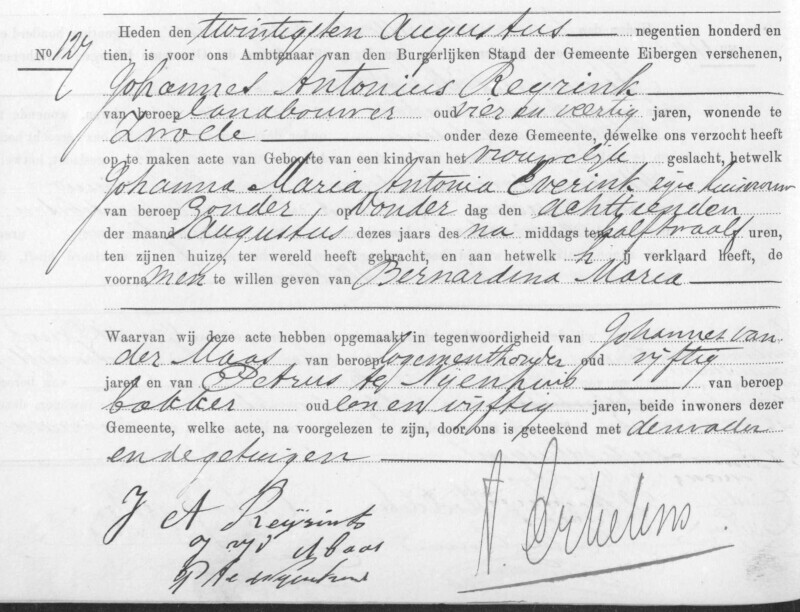 Heden den twintigsten Augustus negentien honderd en
No. 127 tien, is voor ons Ambtenaar van den Burgerlijken Stand der Gemeente Eibergen verschenen,
Johannes Antonius Reyrink
van beroep landbouwer oud vier en veertig jaren, wonende te
Zwolle onder deze Gemeente, dewelke ons verzocht heeft
op te maken acte van Geboorte van een kind van het vrouwelijk geslacht, hetwelk
Johanna Maria Antonia Everink zijne huisvrouw
van beroep zonder op Donder dag den achttienden
der maand Augustus dezes jaars des na middags ten half twaalf uren,
ten zijnen huize, ter wereld heeft gebracht, en aan hetwelk h ij verklaard heeft, de
voornamen te willen geven van Bernardina Maria
Waarvan wij deze acte hebben opgemaakt in tegenwoordigheid van Johannes van
der Maas van beroep logementhouder oud vijftig
jaren en van Petrus te Nijenhuis van beroep
bakker oud een en vijftig jaren, beide inwoners dezer
Gemeente, welke acte, na voorgelezen te zijn, door ons is geteekend met den vader
en de getuigen
J A Reijrink
J vd Maas
P te Nijenhuis